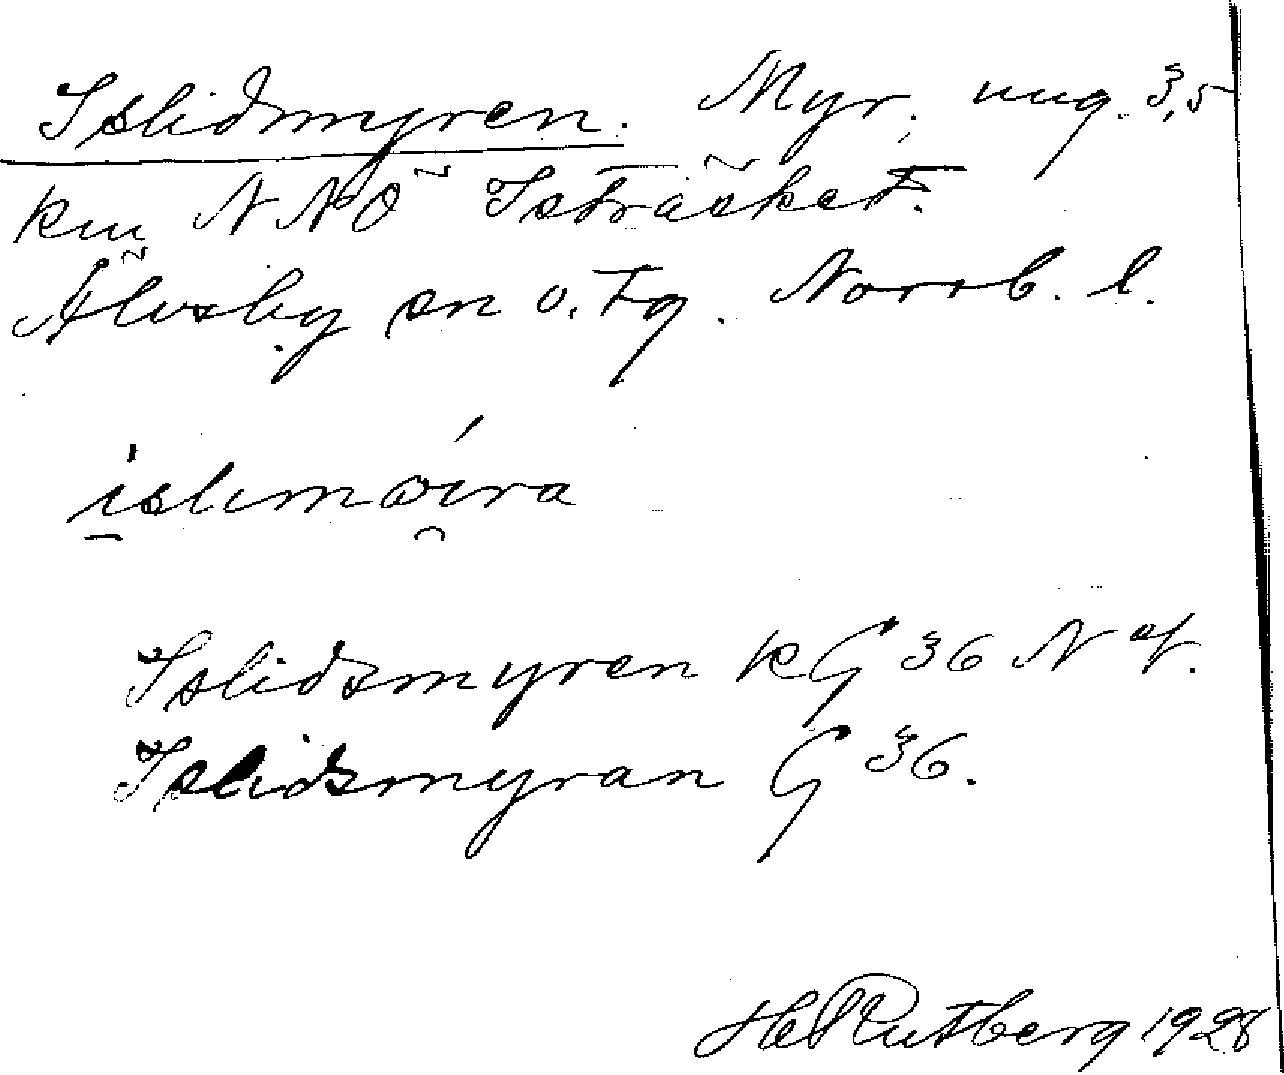 Islidmyren. Myr, ung. 3,5
km NNÖ Isträsket.
Älvsby sn o. tg. Norrb. l.
Islidsmyren kG 36 N of.
Islidsmyran G 36.
H Rutberg 1928